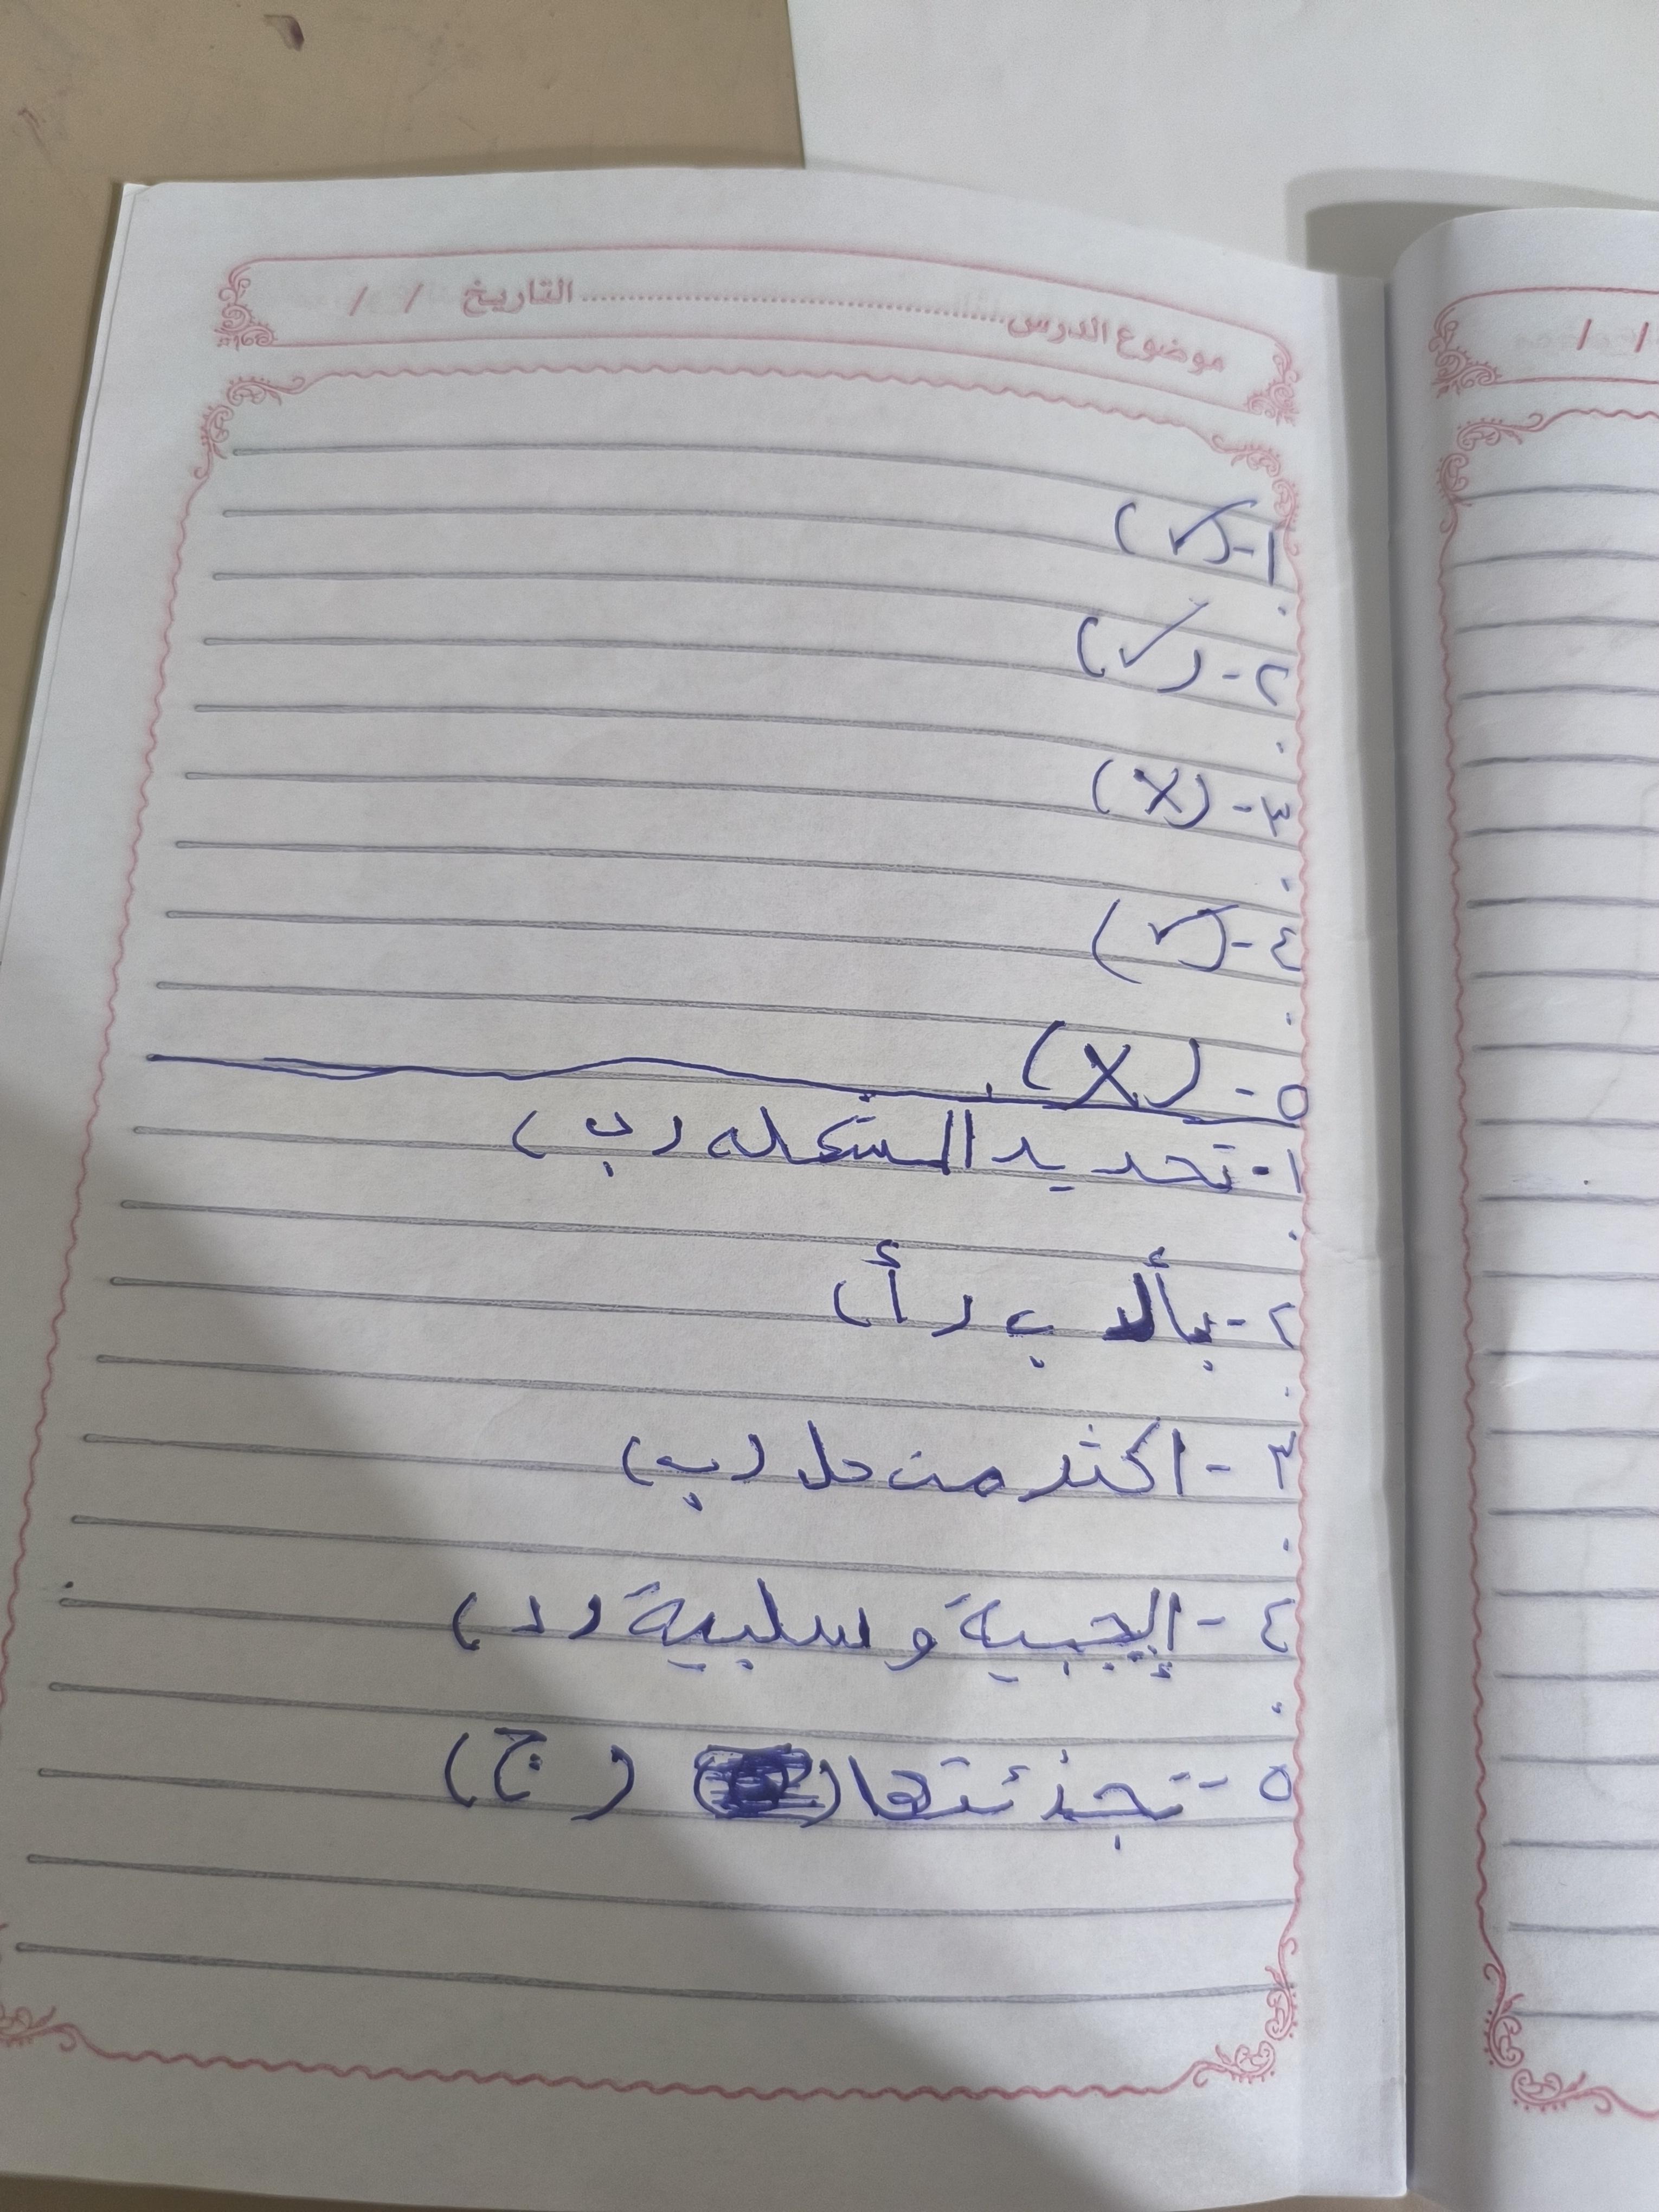 موضوع الدرس ........................ التاريخ / /
١- (✓)
٢- (✓)
٣- (X)
٤- (✓)
٥- (X)
١- تحديد المشكله (ب)
٢- بألا ب (أ)
٣- اكثر من حل (ب)
٤- إيجبية و سلبية (د)
٥- تجذئتها ( ) (ج)
/ /